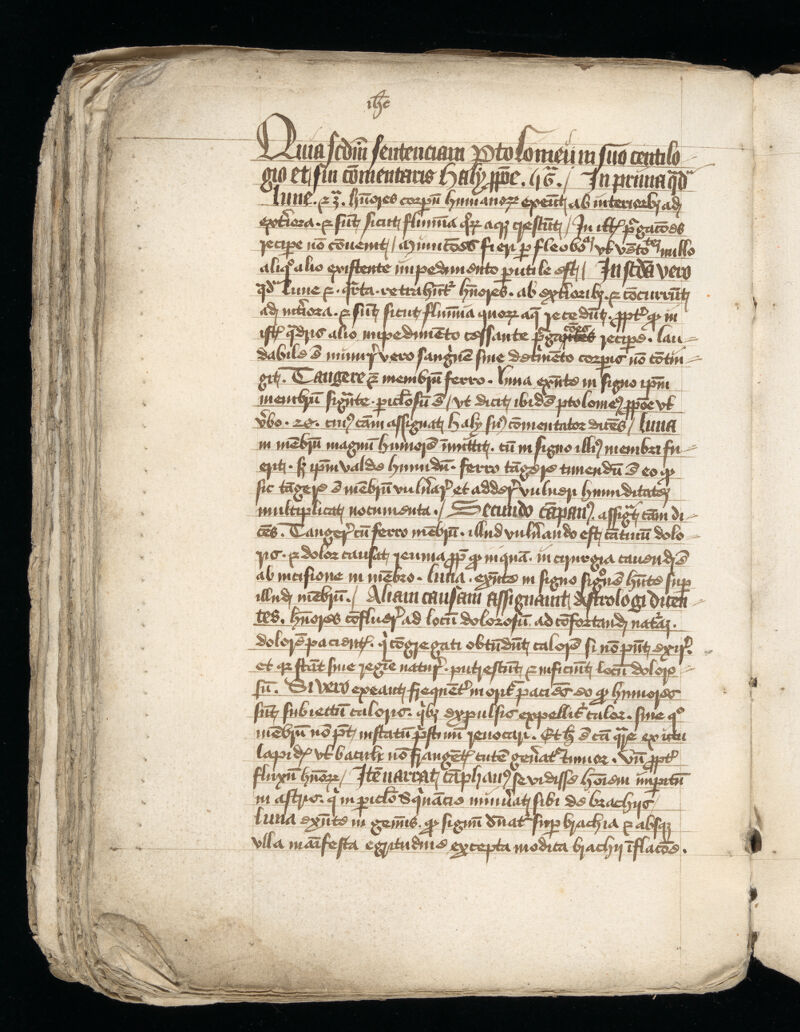 ihc
Quia scdm sentenciam Ptolomei in suo centilo
gio et sui comentaris Haly ppoe. In prima qd
lune. et 3. humores corpum humanorum exeunt ab interioribus ad
exteriora. et sunt sicut flumina quorum aque crescunt / In istis
recipe non conuenit / minutoes fieri per fleobo vel vento nullo
aliquo alio existente impedimento putile est // In scda vero
qd lune et. qrta. retrahuntur humores. ab exterioribus et concurrunt
ad interiora. et sunt sicut flumina quorum aque recedunt. propter quod in
istis qdris alio impedimento cessante recipe. lau
dabile est minui vero sanguine sine detrimento corporis non contin
git. Tangere membrum ferro. luna exnte in signo ipm
membrum signante. periclosum est / vt dicit ibidem ptolomeus ppoe vt
vbo. 20. cuius cam assignat Haly suus comentator dices / luna
in membrum magnum humorem inmittit. cum in signo illius membri fu
erit. si ipm valde humidum. ferro tangere timendum est eo quod
sic tangere est membrum vulnerari et addere vulneri humiditatem
multiplicat nocumenta. / Secundo campanus. assignat cam di
ces. Tangere cum ferro membrum. illud vulnerando est cum dolo
ris. et dolor causat reuma quod in cirurgia cauendum est
ab incisione in membro. luna. exnte in signo signo hnte sup
illud membrum. / Aliam causam assignaunt Astrologi dicen
tes. humores confluere ad locum dolorosum. ad confortandum naturam.
dolore pacientis. qui congregati obtundunt calore si non pnt exire.
et quia stant sine regimine nature. putrescunt et inficiunt locum doloro
sum. Si vero exeant frequenter moritur paciens eo quod humores
sunt subiectum caloris. quibus expulsis expellitur calor. sine quo
membrum non potest in statum pristinum reuocari. Et hec est causa quare ex ictu
lapidis vel baculi non frangentis cutem generatur tumor.
fluxum humorum / Item narrat campanus se vidisse hominem imperitum
in astris. qui in periculo minuerat sibi de brachijs
luna exnte in geminis. quod signum dominatur super brachia et absque
vlla manifesta egritudine excepta modica brachij inflacoe.